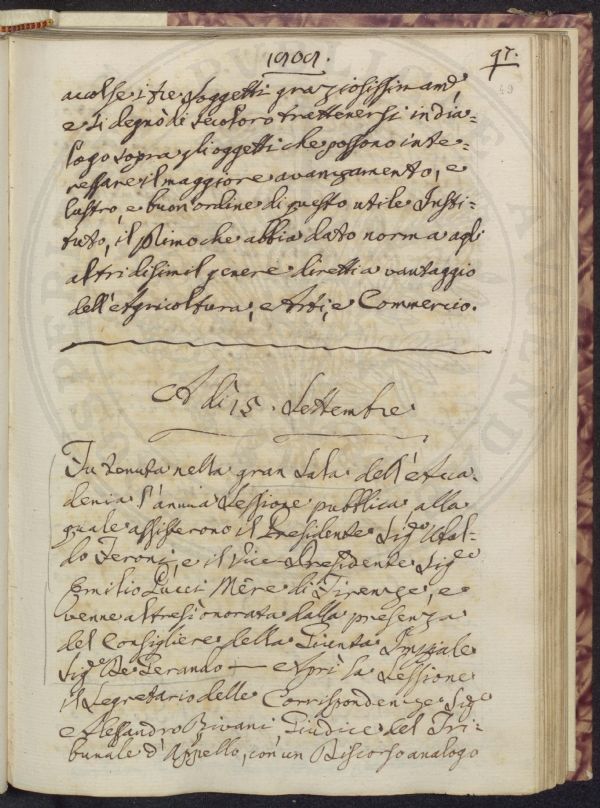 1808.
97.
49
accolse i tre Soggetti graziosissimam.e,
e si degnò di secoloro trattenersi in dia=
logo sopra gli oggetti che possono inte=
ressare il maggiore avanzamento, e
lustro, e buon'ordine di questo utile Insti=
tuto, il Primo che abbia dato norma agli
altri di simil genere diretti a vantaggio
dell'Agricoltura, e Arti, e Commercio.
A dì 15. Settembre
Fu tenuta nella gran Sala dell'Acca=
demia l'annua Sessione pubblica alla
quale assisterono il Presidente Sig.re Ubal=
do Feroni, e il Vice-Presidente Sig.re
Emilio Pucci Mere di Firenze, e
venne altresì onorata dalla presenza
del Consigliere della Giunta Imp.iale
Sig.re De Gerando — e aprì la Sessione
il Segretario delle Corrispondenze Sig.re
Alessandro Rivani Giudice del Tri=
bunale d'Appello, con un Discorso analogo